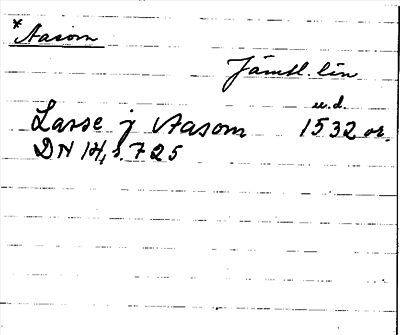 *Aasom
Jämtl. län
u.d.
Lasse j Aasom 1532 or.
DN 14, s. 725